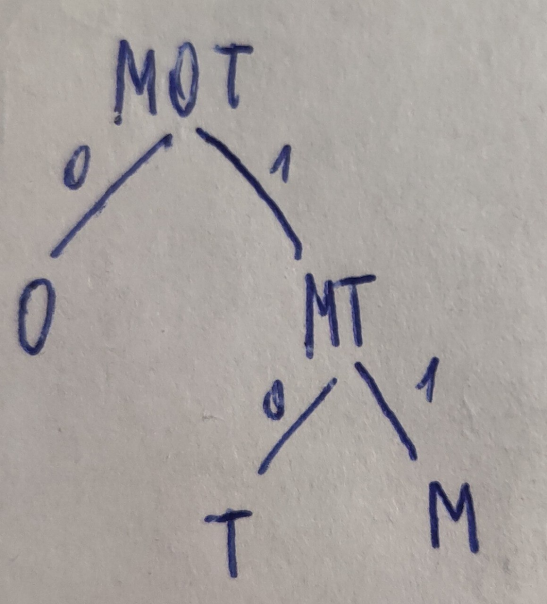 MOT
0 1
O
MT
0 1
T M